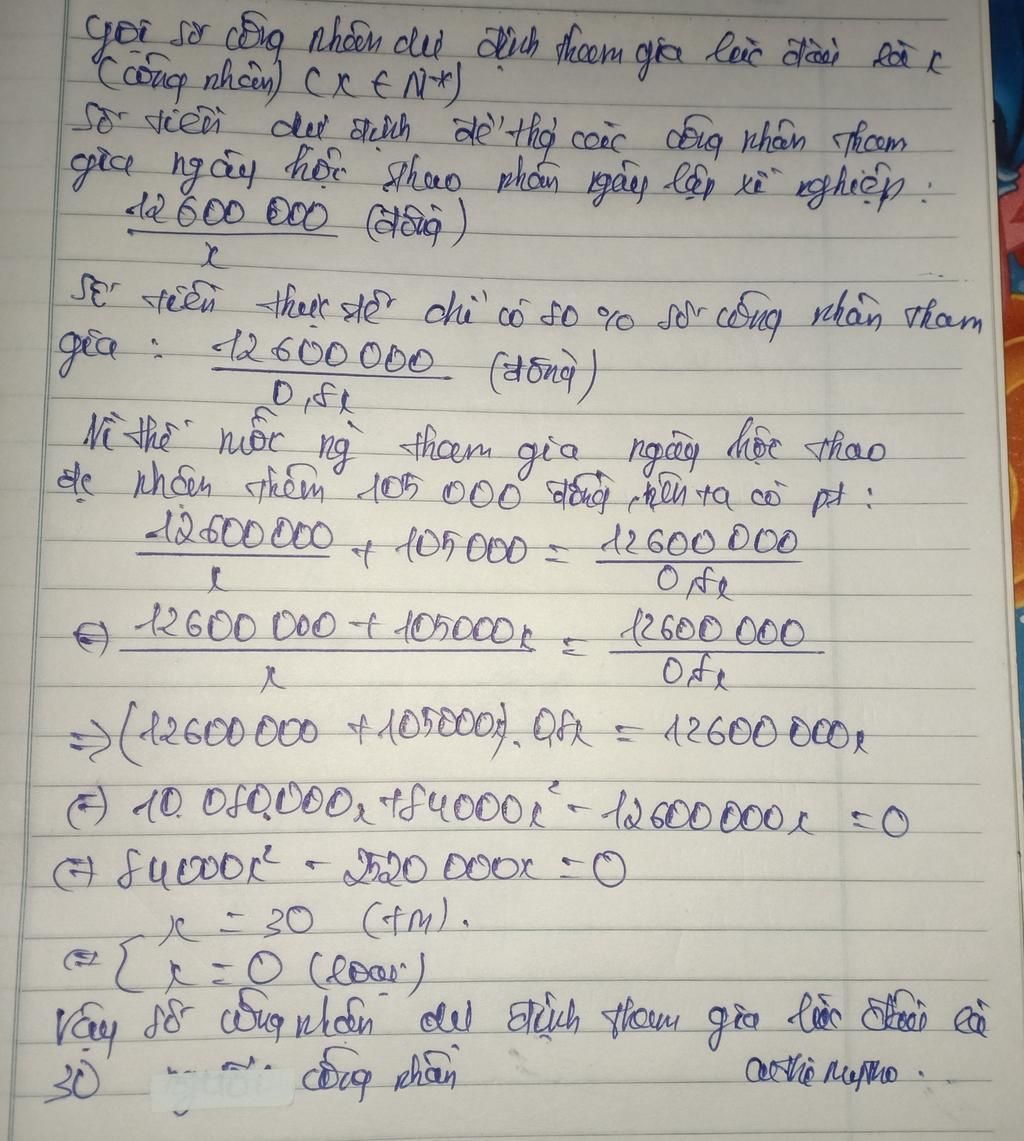 Gọi số công nhân dự định tham gia lúc đầu là x
(công nhân) (x ∈ N*)
Số tiền dự định để thg các công nhân tham
gia ngày hội thao nhân ngày lập xí nghiệp:
12600 000 / x (đồng)
Số tiền thực tế chỉ có 80 % số công nhân tham
gia : 12600 000 / 0,8x (đồng)
Vì thế mỗi ng tham gia ngày hội thao
đc nhận thêm 105 000 đồng, nên ta có pt :
12600000 / x + 105000 = 12600 000 / 0,8x
⇔ 12600 000 + 105000x / x = 12600 000 / 0,8x
⇒ (12600 000 + 105000x). 0,8x = 12600 000x
⇔ 10.080.000x + 84000x² - 12600000x = 0
⇔ 84000x² - 2520 000x = 0
⇔ [ x = 30 (tm).
x = 0 (loại)
Vậy số công nhân dự định tham gia lúc đầu là
30 công nhân